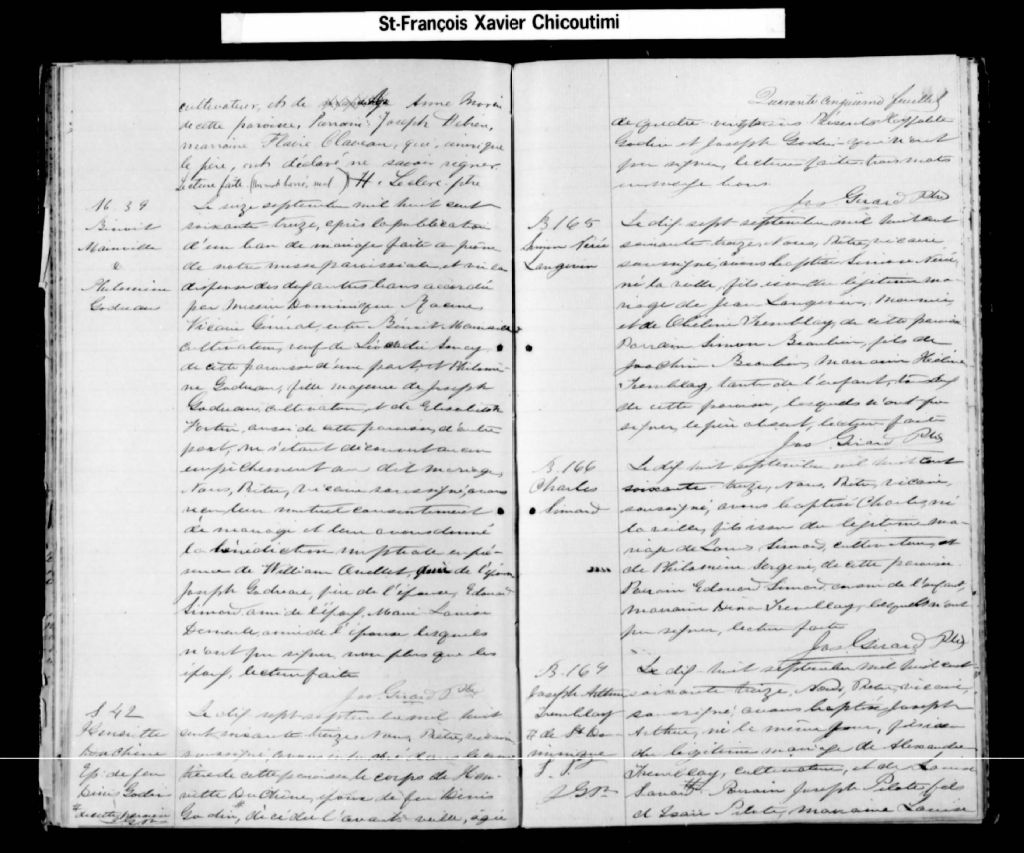 St-François Xavier Chicoutimi
cultivateur, et de Anne Morin
de cette paroisse, Parrain Joseph
marraine Flavie Claveau, qui, ainsi que
le père, ont déclaré ne savoir signer
Lecture faite. H. Leclerc ptre
M. 39
Benoit
Mainville
&
Philomène
Godreau
Le seize septembre mil huit cent
soixante treize, après la publication
d'un ban de mariage faite au prône
de notre messe paroissiale, et vu la
dispense des deux autres bans accordée
par Messire Dominique Racine
Vicaire Général, entre Benoit
cultivateur, veuf de Léocadie
de cette paroisse d'une part, et Philomè-
ne Godreau, fille majeure de Joseph
Godreau, cultivateur, et de Elisabeth
Fortin, aussi de cette paroisse, d'autre
part, ne s'étant découvert aucun
empêchement au dit mariage,
Nous, Prêtre, vicaire soussigné, avons
reçu leur mutuel consentement
de mariage et leur avons donné
la bénédiction nuptiale en pré-
sence de William Ouellet, de l'époux
Joseph Godreau, père de l'épouse, Edouard
Simard, ami de l'époux, Marie Louise
amie de l'épouse lesquels
n'ont pu signer non plus que les
époux, lecture faite
Jos Girard Ptre
S 42
Henriette
DuChène
Ep. de feu
Denis Godin
Le dix sept septembre mil huit
cent soixante treize Nous, Prêtre, vicaire
soussigné, avons inhumé dans le cime
tière de cette paroisse le corps de Hen
riette DuChène, épouse de feu Denis
Godin, décédée l'avant veille, agée
Quarante cinquième feuillet
de quatre vingt ans Présents Hyppolite
Godin et Joseph Godin qui n'ont
pu signer, lecture faite trois mots
en marge bons.
Jos Girard Ptre
B. 165
Simon Nérée
Langevin
Le dix sept septembre mil huit cent
soixante treize, Nous, Prêtre, vicaire
soussigné, avons baptisé Simon Nérée,
né la veille, fils issu du légitime ma-
riage de Jean Langevin, Meunier
et de Tremblay, de cette paroisse
Parrain Simon Beaulieu, fils de
Joachim Beaulieu, Marraine
Tremblay, tante de l'enfant,
de cette paroisse, lesquels n'ont pu
signer, le père absent, lecture faite
Jos Girard Ptre
B. 166
Charles
Simard
Le dix huit septembre mil huit cent
soixante treize, Nous, Prêtre, vicaire,
soussigné, avons baptisé Charles, né
la veille, fils issu du légitime ma-
riage de Louis Simard, cultivateur, et
de Philomène de cette paroisse
Parrain Edouard Simard cousin de l'enfant,
marraine Dina Tremblay, lesquels n'ont
pu signer, lecture faite
Jos Girard Ptre
B. 167
Joseph Arthur
Tremblay
# de St Do-
minique
Le dix huit septembre mil huit cent
soixante treize, Nous, Prêtre, vicaire,
soussigné, avons baptisé Joseph
Arthur, né le même jour,
du légitime mariage de Alexandre
Tremblay, cultivateur, et de Louise
Savard # Parrain Joseph Pilote, fils
d'Isaïe Pilote, marraine Louise